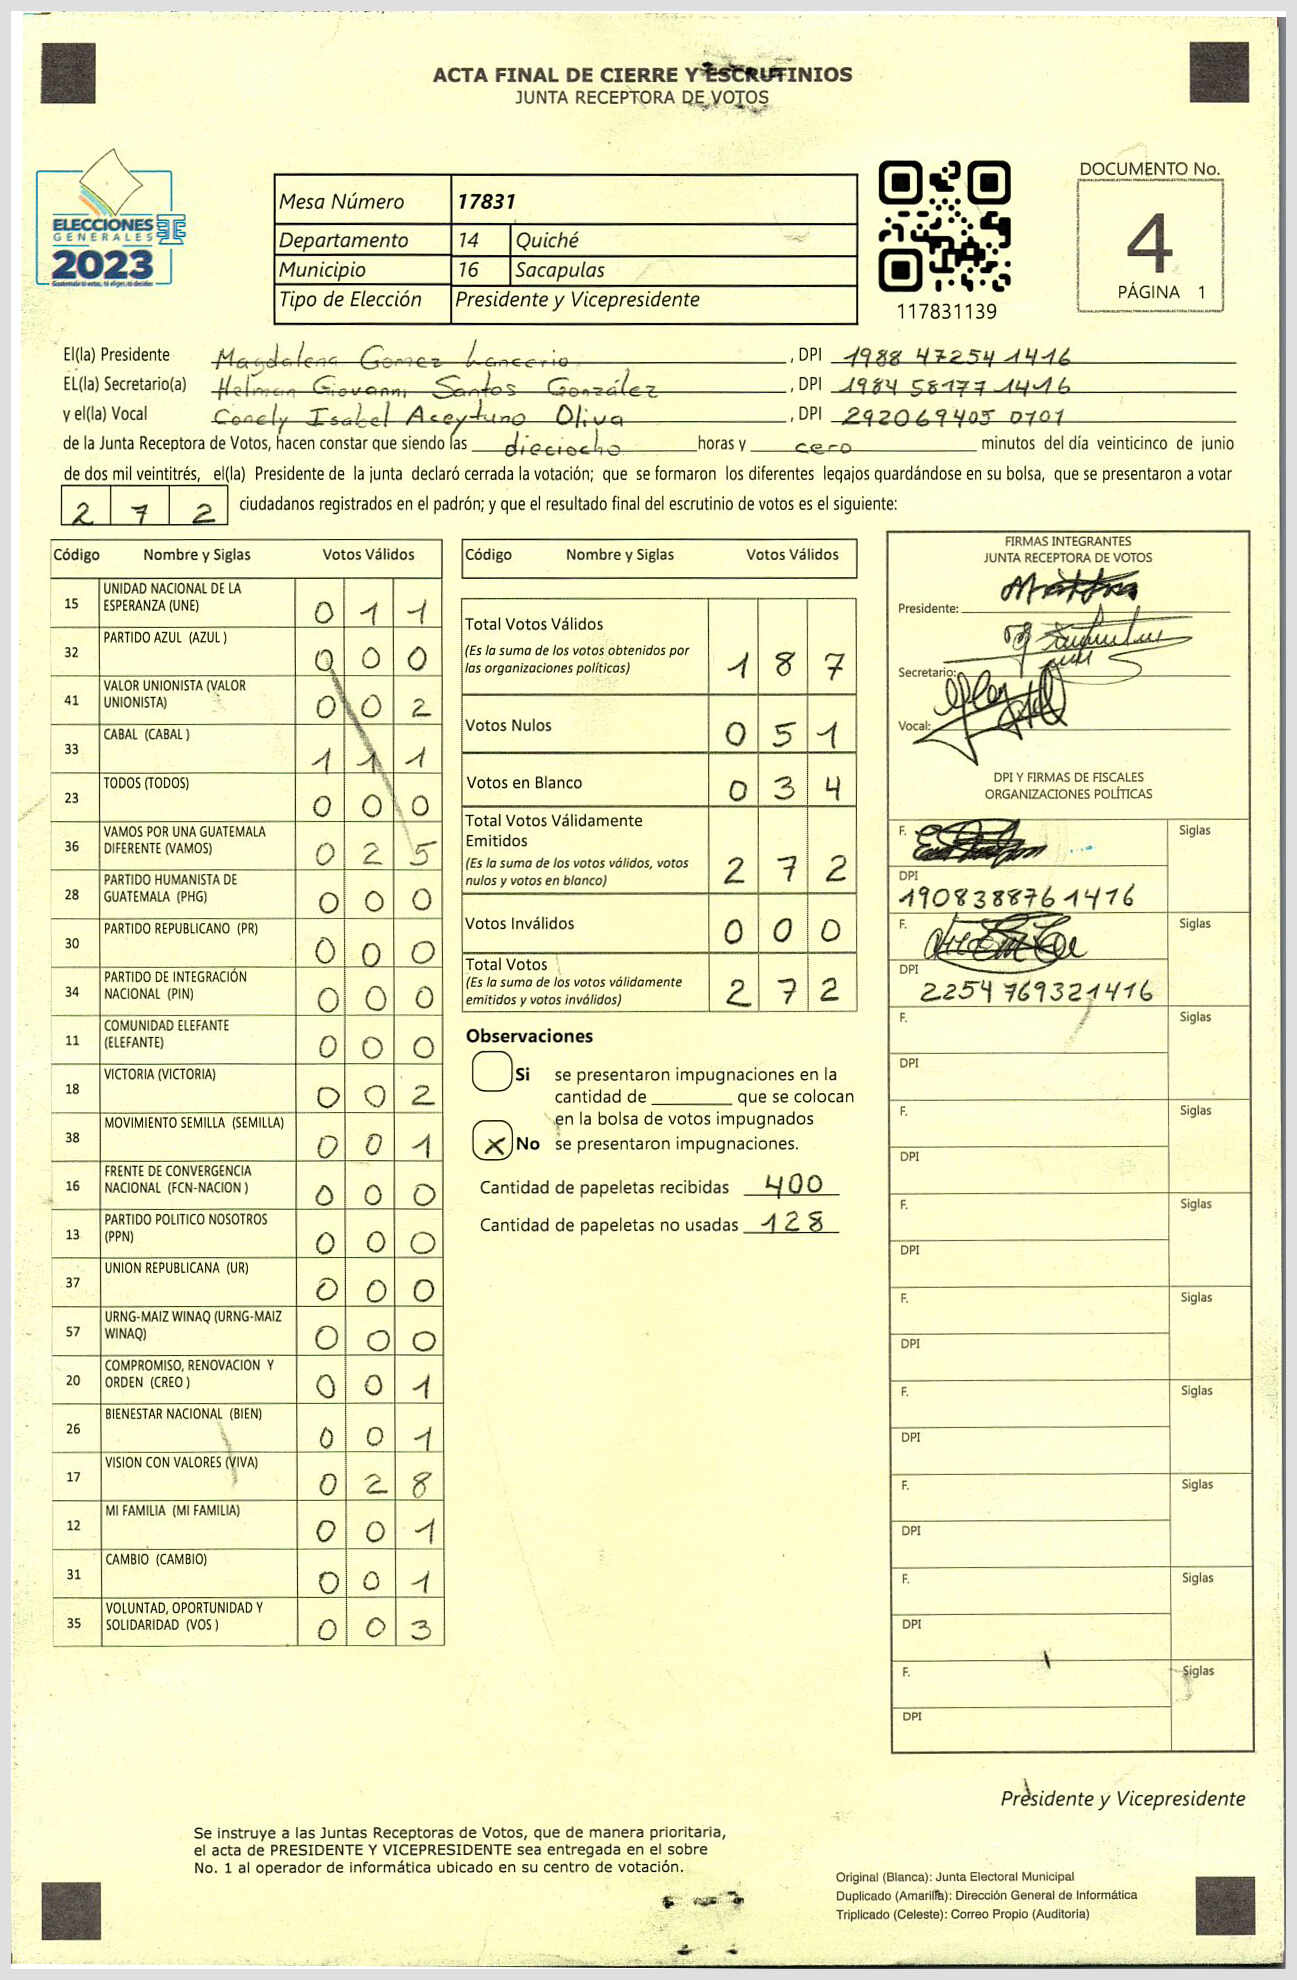 ACTA FINAL DE CIERRE Y ESCRUTINIOS
JUNTA RECEPTORA DE VOTOS
ELECCIONES
GENERALES
2023
Mesa Número 17831
Departamento 14 Quiché
Municipio 16 Sacapulas
Tipo de Elección Presidente y Vicepresidente
117831139
DOCUMENTO No.
4
PÁGINA 1
El(la) Presidente Magdalena Gomez Lancerio, DPI 1988 47254 1416
EL(la) Secretario(a) Helman Giovanni Santos González, DPI 1984 58177 1416
y el(la) Vocal Conely Isabel Aceytuno Oliva, DPI 292069405 0701
de la Junta Receptora de Votos, hacen constar que siendo las dieciocho horas y cero minutos del día veinticinco de junio
de dos mil veintitrés, el(la) Presidente de la junta declaró cerrada la votación; que se formaron los diferentes legajos guardándose en su bolsa, que se presentaron a votar
2 7 2 ciudadanos registrados en el padrón; y que el resultado final del escrutinio de votos es el siguiente:
Código Nombre y Siglas Votos Válidos
15 UNIDAD NACIONAL DE LA
ESPERANZA (UNE) 0 1 1
32 PARTIDO AZUL (AZUL ) 0 0 0
41 VALOR UNIONISTA (VALOR
UNIONISTA) 0 0 2
33 CABAL (CABAL ) 1 1 1
23 TODOS (TODOS) 0 0 0
36 VAMOS POR UNA GUATEMALA
DIFERENTE (VAMOS) 0 2 5
28 PARTIDO HUMANISTA DE
GUATEMALA (PHG) 0 0 0
30 PARTIDO REPUBLICANO (PR) 0 0 0
34 PARTIDO DE INTEGRACIÓN
NACIONAL (PIN) 0 0 0
11 COMUNIDAD ELEFANTE
(ELEFANTE) 0 0 0
18 VICTORIA (VICTORIA) 0 0 2
38 MOVIMIENTO SEMILLA (SEMILLA) 0 0 1
16 FRENTE DE CONVERGENCIA
NACIONAL (FCN-NACION ) 0 0 0
13 PARTIDO POLITICO NOSOTROS
(PPN) 0 0 0
37 UNION REPUBLICANA (UR) 0 0 0
57 URNG-MAIZ WINAQ (URNG-MAIZ
WINAQ) 0 0 0
20 COMPROMISO, RENOVACION Y
ORDEN (CREO ) 0 0 1
26 BIENESTAR NACIONAL (BIEN) 0 0 1
17 VISION CON VALORES (VIVA) 0 2 8
12 MI FAMILIA (MI FAMILIA) 0 0 1
31 CAMBIO (CAMBIO) 0 0 1
35 VOLUNTAD, OPORTUNIDAD Y
SOLIDARIDAD (VOS ) 0 0 3
Código Nombre y Siglas Votos Válidos
Total Votos Válidos
(Es la suma de los votos obtenidos por
las organizaciones políticas) 1 8 7
Votos Nulos 0 5 1
Votos en Blanco 0 3 4
Total Votos Válidamente
Emitidos
(Es la suma de los votos válidos, votos
nulos y votos en blanco) 2 7 2
Votos Inválidos 0 0 0
Total Votos
(Es la suma de los votos válidamente
emitidos y votos inválidos) 2 7 2
Observaciones
Si se presentaron impugnaciones en la
cantidad de ________ que se colocan
en la bolsa de votos impugnados
X No se presentaron impugnaciones.
Cantidad de papeletas recibidas 400
Cantidad de papeletas no usadas 128
FIRMAS INTEGRANTES
JUNTA RECEPTORA DE VOTOS
Presidente:
Secretario:
Vocal:
DPI Y FIRMAS DE FISCALES
ORGANIZACIONES POLÍTICAS
F. Siglas
DPI
190838876 1416
F. Siglas
DPI
2254 769321416
F. Siglas
DPI
F. Siglas
DPI
F. Siglas
DPI
F. Siglas
DPI
F. Siglas
DPI
F. Siglas
DPI
F. Siglas
DPI
F. Siglas
DPI
Presidente y Vicepresidente
Se instruye a las Juntas Receptoras de Votos, que de manera prioritaria,
el acta de PRESIDENTE Y VICEPRESIDENTE sea entregada en el sobre
No. 1 al operador de informática ubicado en su centro de votación.
Original (Blanca): Junta Electoral Municipal
Duplicado (Amarilla): Dirección General de Informática
Triplicado (Celeste): Correo Propio (Auditoría)